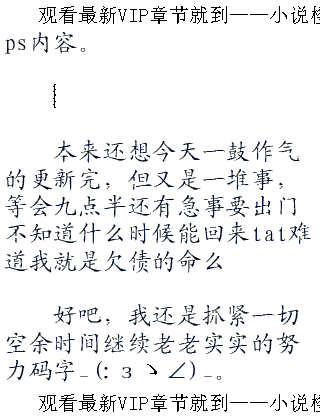 观看最新VIP章节就到——小说
ps内容。
本来还想今天一鼓作气
的更新完，但又是一堆事，
等会九点半还有急事要出门
不知道什么时候能回来tat难
道我就是欠债的命么
好吧，我还是抓紧一切
空余时间继续老老实实的努
力码字_(:з丶∠)_。
观看最新VIP章节就到——小说